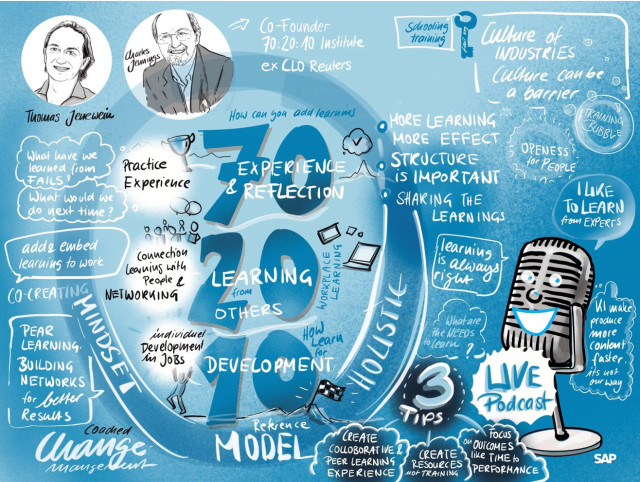 Thomas Jenewein
Charles Jennings
Co-Founder
70:20:10 Institute
ex CLO Reuters
Schooling
training
Culture of
INDUSTRIES
Culture can be
a barrier
TRAINING
BUBBLE
OPENESS
for PEOPLE
I LIKE
TO LEARN
from EXPERTS
How can you add learning
70
EXPERIENCE
& REFLECTION
Practice
Experience
What have we
learned from
FAILS!
What would we
do next time?
MORE LEARNING
MORE EFFECT
STRUCTURE
is IMPORTANT
SHARING THE
LEARNINGS
add & embed
learning to work
Connection
Learning with
People &
NETWORKING
20
LEARNING
from
OTHERS
WORKPLACE
LEARNING
learning
is always
right
CO-CREATING
MINDSET
HOLISTIC
PEAR
LEARNING.
BUILDING
NETWORKS
for better
Results
individuel
Development
in JOBS
10
DEVELOPMENT
How
Learn
for
What are
the NEEDS
to learn?
KI make
produce
more
content
faster.
its not
our way
LIVE
Podcast
SAP
coached
Change
management
Reference
MODEL
3
TIPS
CREATE
COLLOBORATIVE &
PEER LEARNING
EXPERIENCE
CREATE
RESOURCES
NOT TRAINING
FOCUS
on OUTCOMES
like TIME to
PERFORMANCE